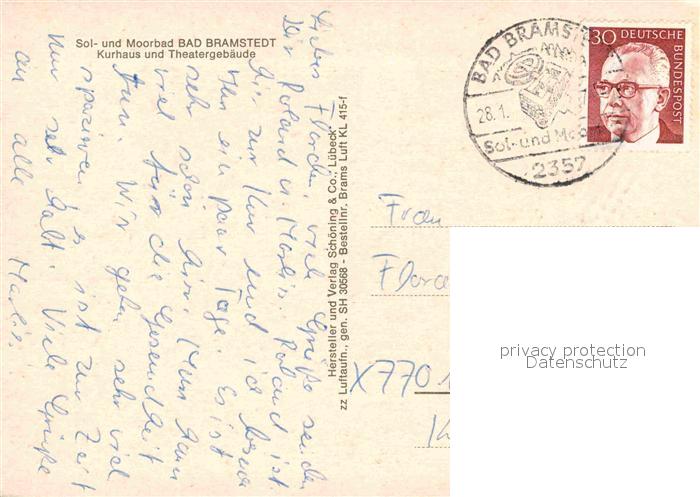 Sol- und Moorbad BAD BRAMSTEDT
Kurhaus und Theatergebäude
Liebes Florchen, viele Grüße senden
Dir Roland u. Marlis. Roland ist
hier zur Kur und ich besuche
ihn ein paar Tage. Es ist
sehr schön hier. Man kann
viel für die Gesundheit
tun. Wir gehen sehr viel
spazieren es ist zur Zeit
nur sehr kalt. Viele Grüße
an alle Marlis.
Hersteller und Verlag Schöning & Co., Lübeck
zz Luftaufn., gen. SH 30568 - Bestellnr. Brams Luft KL 415-f
BAD BRAMSTEDT
28.1.
Sol- und Moorbad
2357
30 DEUTSCHE BUNDESPOST
Frau
X7701
privacy protection
Datenschutz